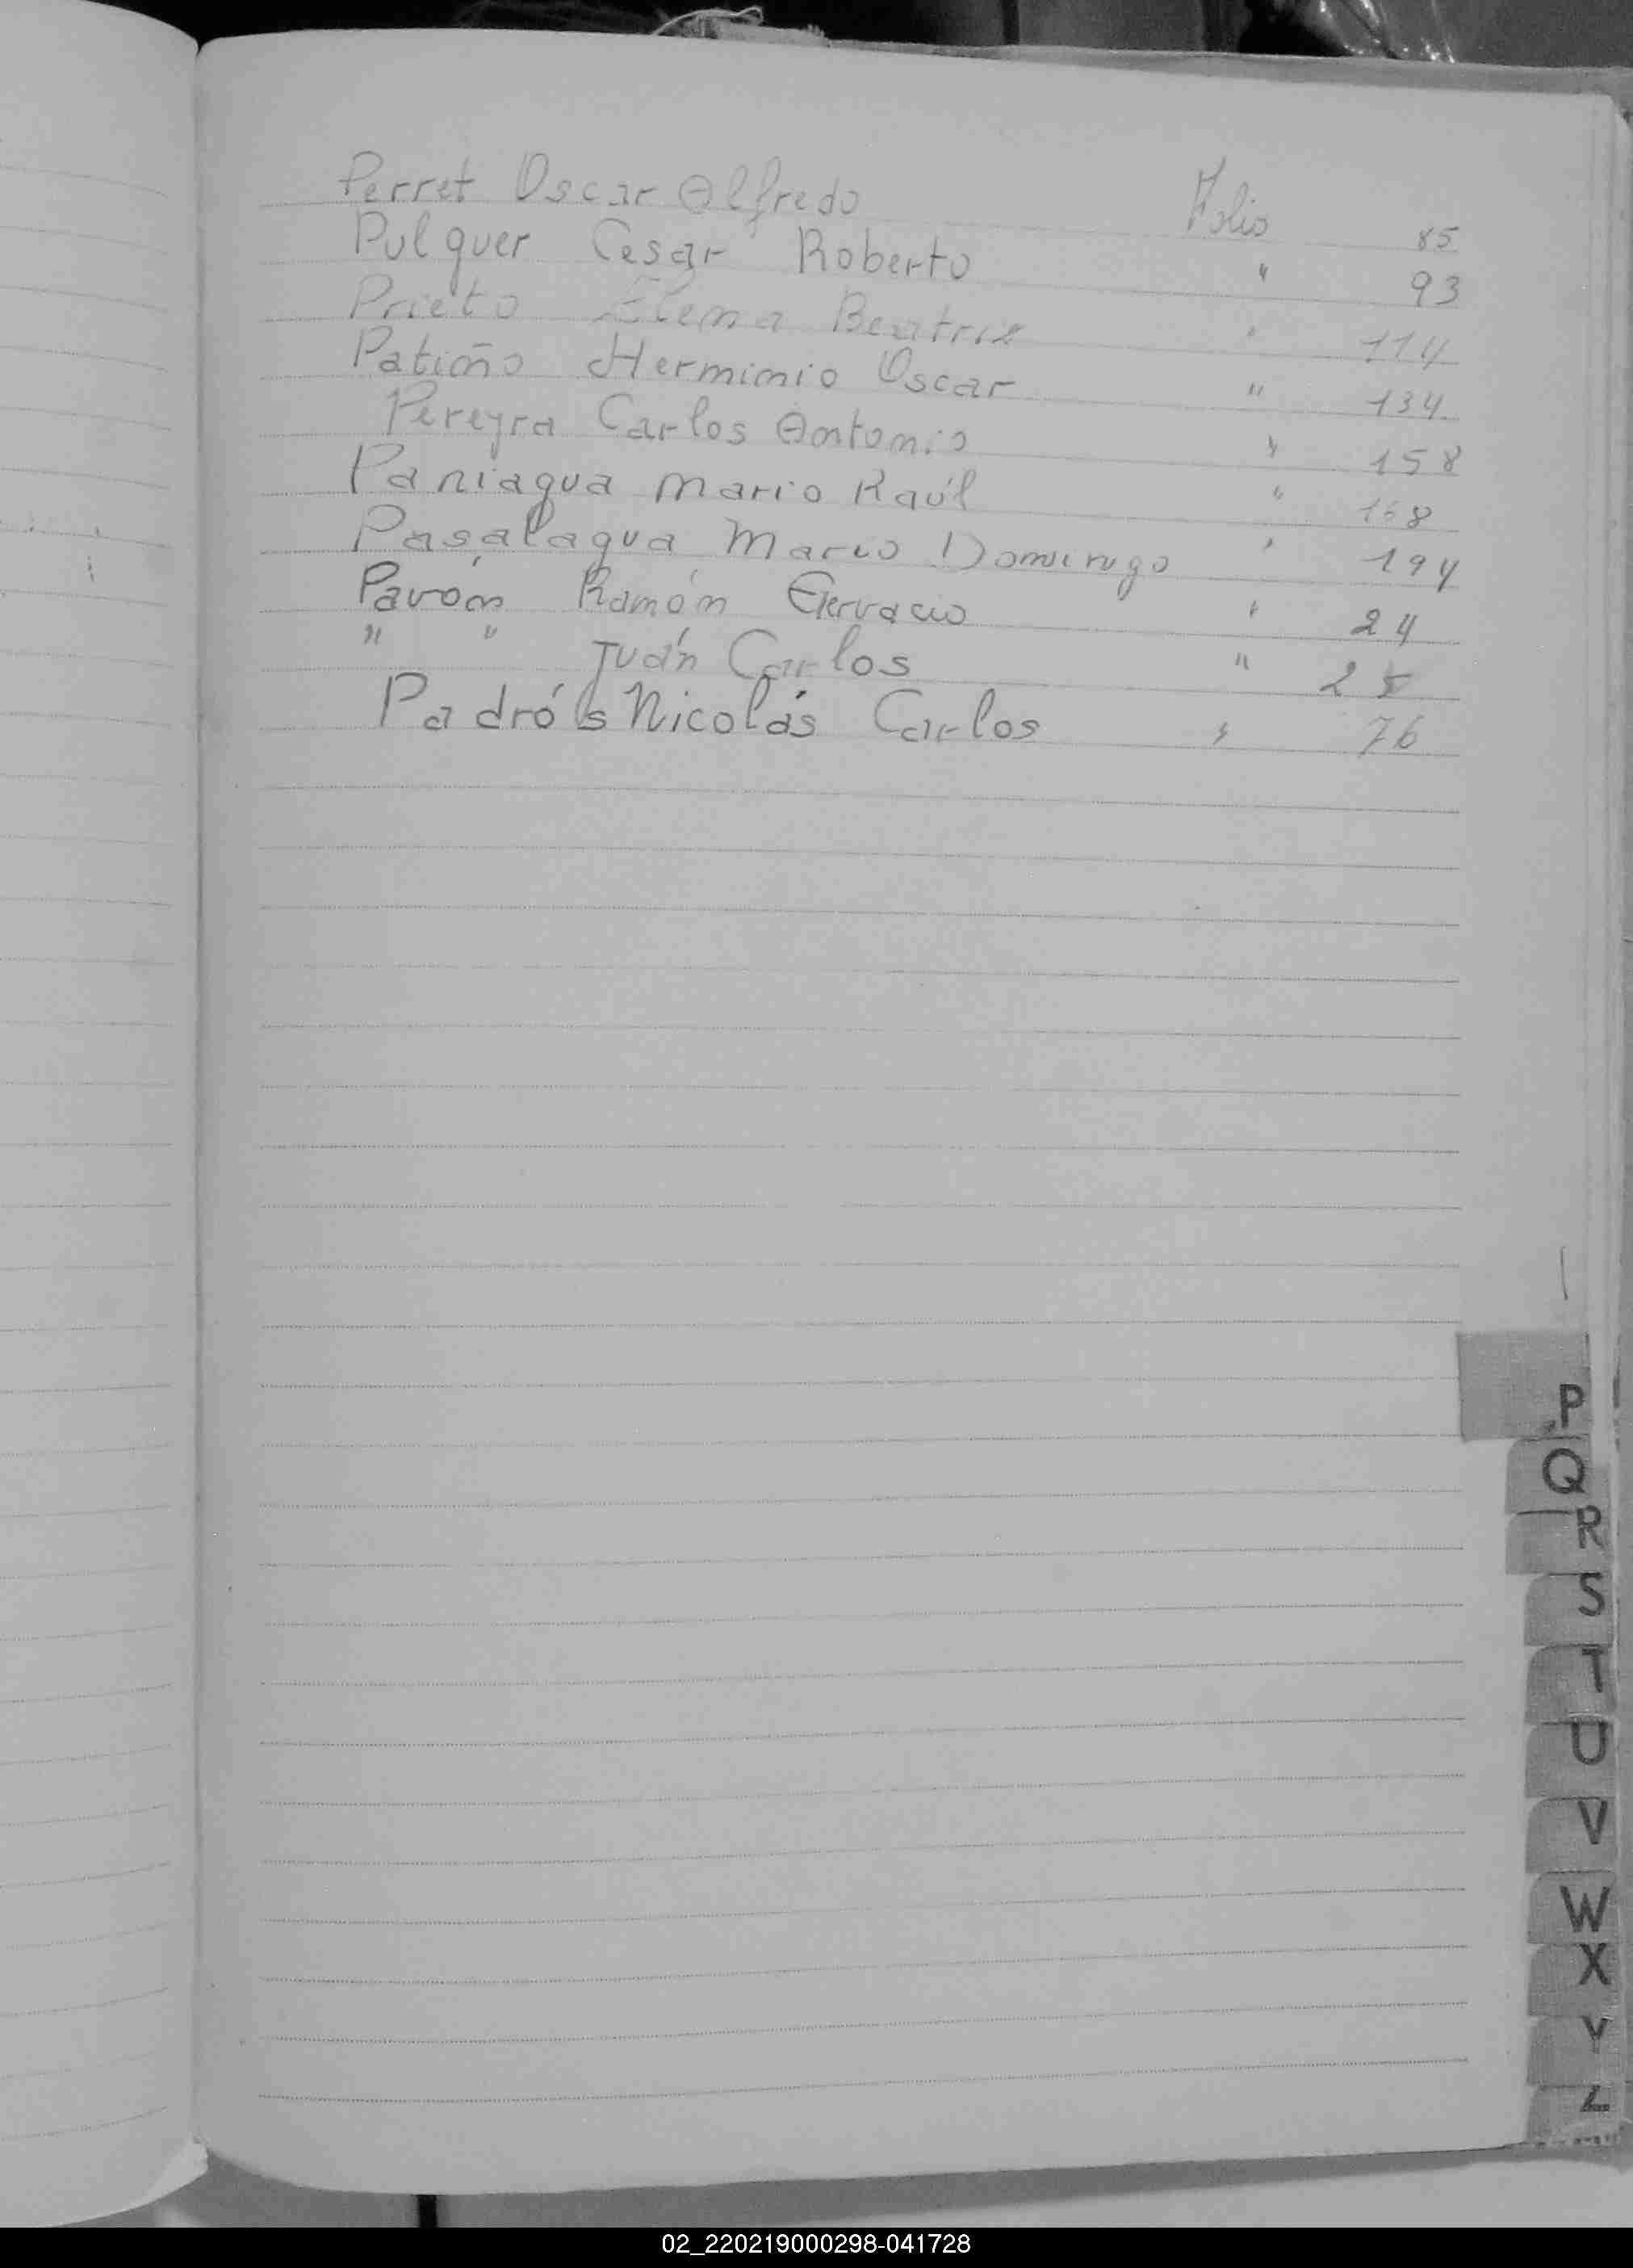 Perret Oscar Alfredo Folio 85
Pulquer Cesar Roberto " 93
Prieto Elena Beatriz " 114
Patiño Herminio Oscar " 134
Pereyra Carlos Antonio " 158
Paniagua Mario Raúl " 168
Pasalagua Mario Domingo " 194
Pavón Ramón " 24
" " Juán Carlos " 25
Padrós Nicolás Carlos " 76
P
Q
R
S
T
U
V
W
X
Y
Z
02_220219000298-041728